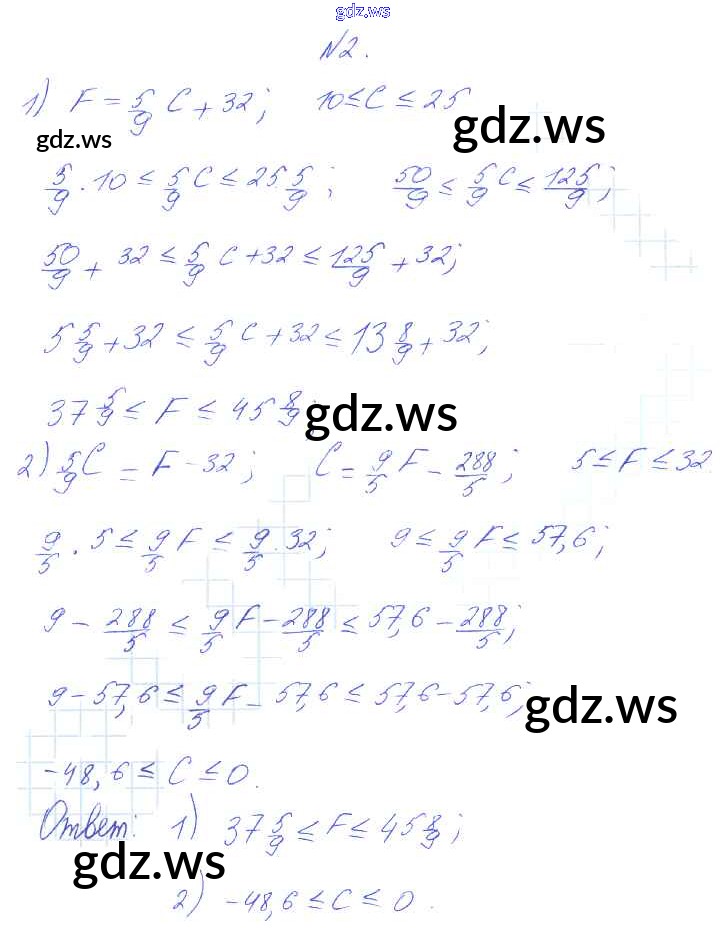 gdz.ws
№2.
1) F = 5/9 C + 32; 10 ≤ C ≤ 25
gdz.ws
gdz.ws
5/9 · 10 ≤ 5/9 C ≤ 25 · 5/9; 50/9 ≤ 5/9 C ≤ 125/9;
50/9 + 32 ≤ 5/9 C + 32 ≤ 125/9 + 32;
5 5/9 + 32 ≤ 5/9 C + 32 ≤ 13 8/9 + 32;
37 5/9 ≤ F ≤ 45 8/9;
gdz.ws
2) 5/9 C = F - 32; C = 9/5 F - 288/5; 5 ≤ F ≤ 32
9/5 · 5 ≤ 9/5 F ≤ 9/5 · 32; 9 ≤ 9/5 F ≤ 57,6;
9 - 288/5 ≤ 9/5 F - 288/5 ≤ 57,6 - 288/5;
9 - 57,6 ≤ 9/5 F - 57,6 ≤ 57,6 - 57,6;
gdz.ws
-48,6 ≤ C ≤ 0.
Ответ: 1) 37 5/9 ≤ F ≤ 45 8/9;
gdz.ws
gdz.ws
2) -48,6 ≤ C ≤ 0.